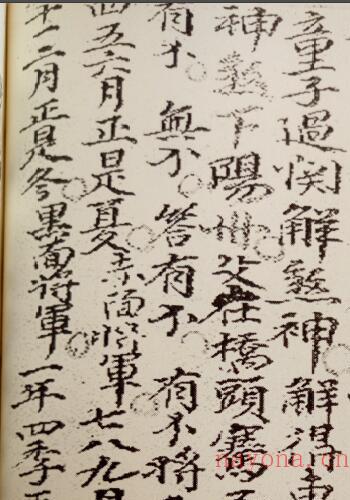 童子過関解煞神解得童
神煞下陽州父在橋頭寡不
有不無不答有不有不将
四五六月正是夏赤面将軍七八九月
十二月正是冬黒面将軍一年四季五
nayona.cn